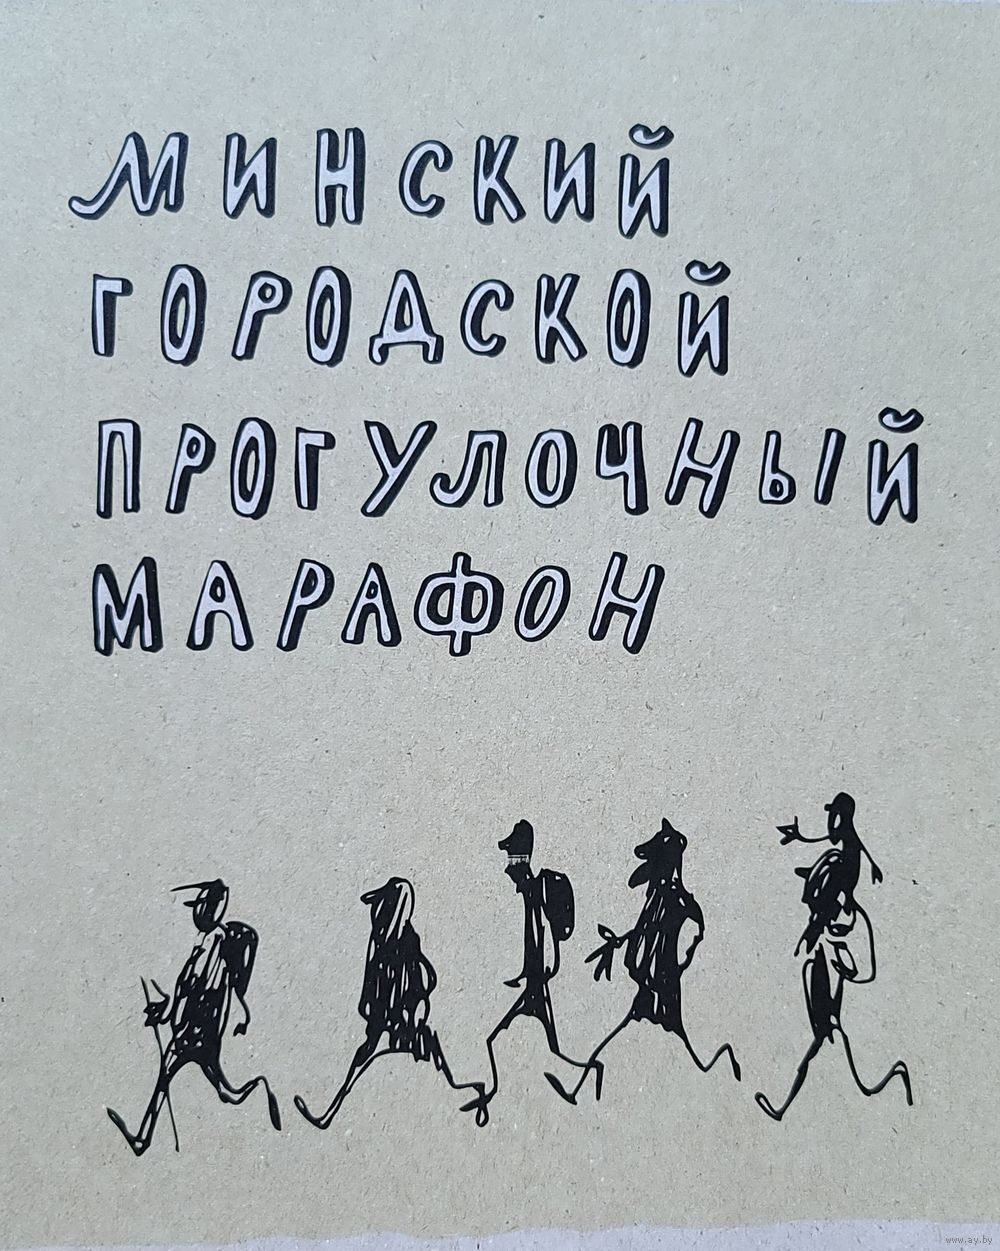 МИНСКИЙ
ГОРОДСКОЙ
ПРОГУЛОЧНЫЙ
МАРАФОН
www.ay.by